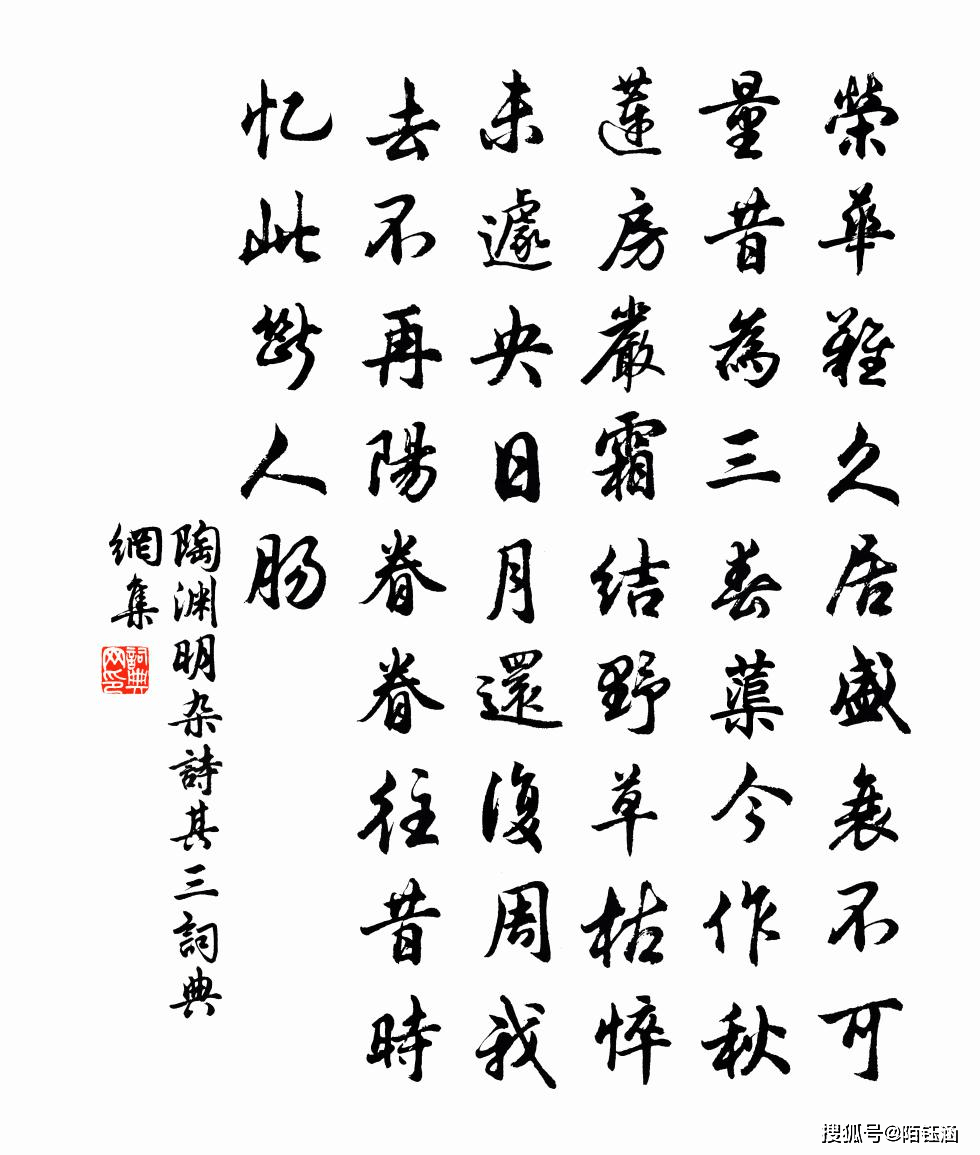 榮華難久居盛衰不可
量昔為三春蕖今作秋
蓮房嚴霜结野草枯悴
未遽央日月還復周我
去不再陽眷眷往昔時
忆此斷人肠
陶渊明杂詩其三詞典
網集
詞典网印
搜狐号@陌钰涵